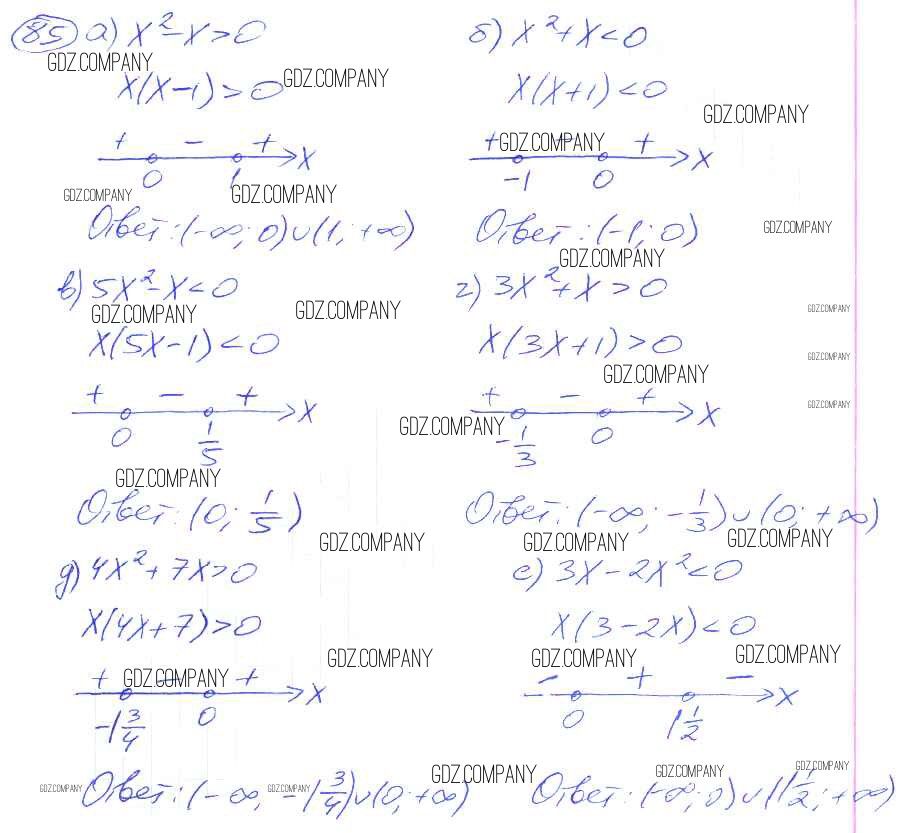 85 а) x² - x > 0
GDZ.COMPANY
x(x-1) > 0
GDZ.COMPANY
+ - + x
0 1
GDZ.COMPANY
GDZ.COMPANY
Ответ: (-∞; 0) ∪ (1; +∞)
б) x² + x < 0
x(x+1) < 0
GDZ.COMPANY
+ GDZ.COMPANY - + x
-1 0
Ответ: (-1; 0)
GDZ.COMPANY
GDZ.COMPANY
в) 5x² - x < 0
GDZ.COMPANY
GDZ.COMPANY
x(5x-1) < 0
+ - + x
0 1/5
GDZ.COMPANY
Ответ: (0; 1/5)
GDZ.COMPANY
г) 3x² + x > 0
GDZ.COMPANY
x(3x+1) > 0
GDZ.COMPANY
GDZ.COMPANY
GDZ.COMPANY
+ - + x
GDZ.COMPANY
-1/3 0
Ответ: (-∞; -1/3) ∪ (0; +∞)
GDZ.COMPANY
GDZ.COMPANY
д) 4x² + 7x > 0
x(4x+7) > 0
GDZ.COMPANY
+ GDZ.COMPANY - + x
-1 3/4 0
GDZ.COMPANY
GDZ.COMPANY
GDZ.COMPANY
Ответ: (-∞; -1 3/4) ∪ (0; +∞)
е) 3x - 2x² < 0
x(3-2x) < 0
GDZ.COMPANY
GDZ.COMPANY
- + - x
0 1 1/2
GDZ.COMPANY
GDZ.COMPANY
Ответ: (-∞; 0) ∪ (1 1/2; +∞)